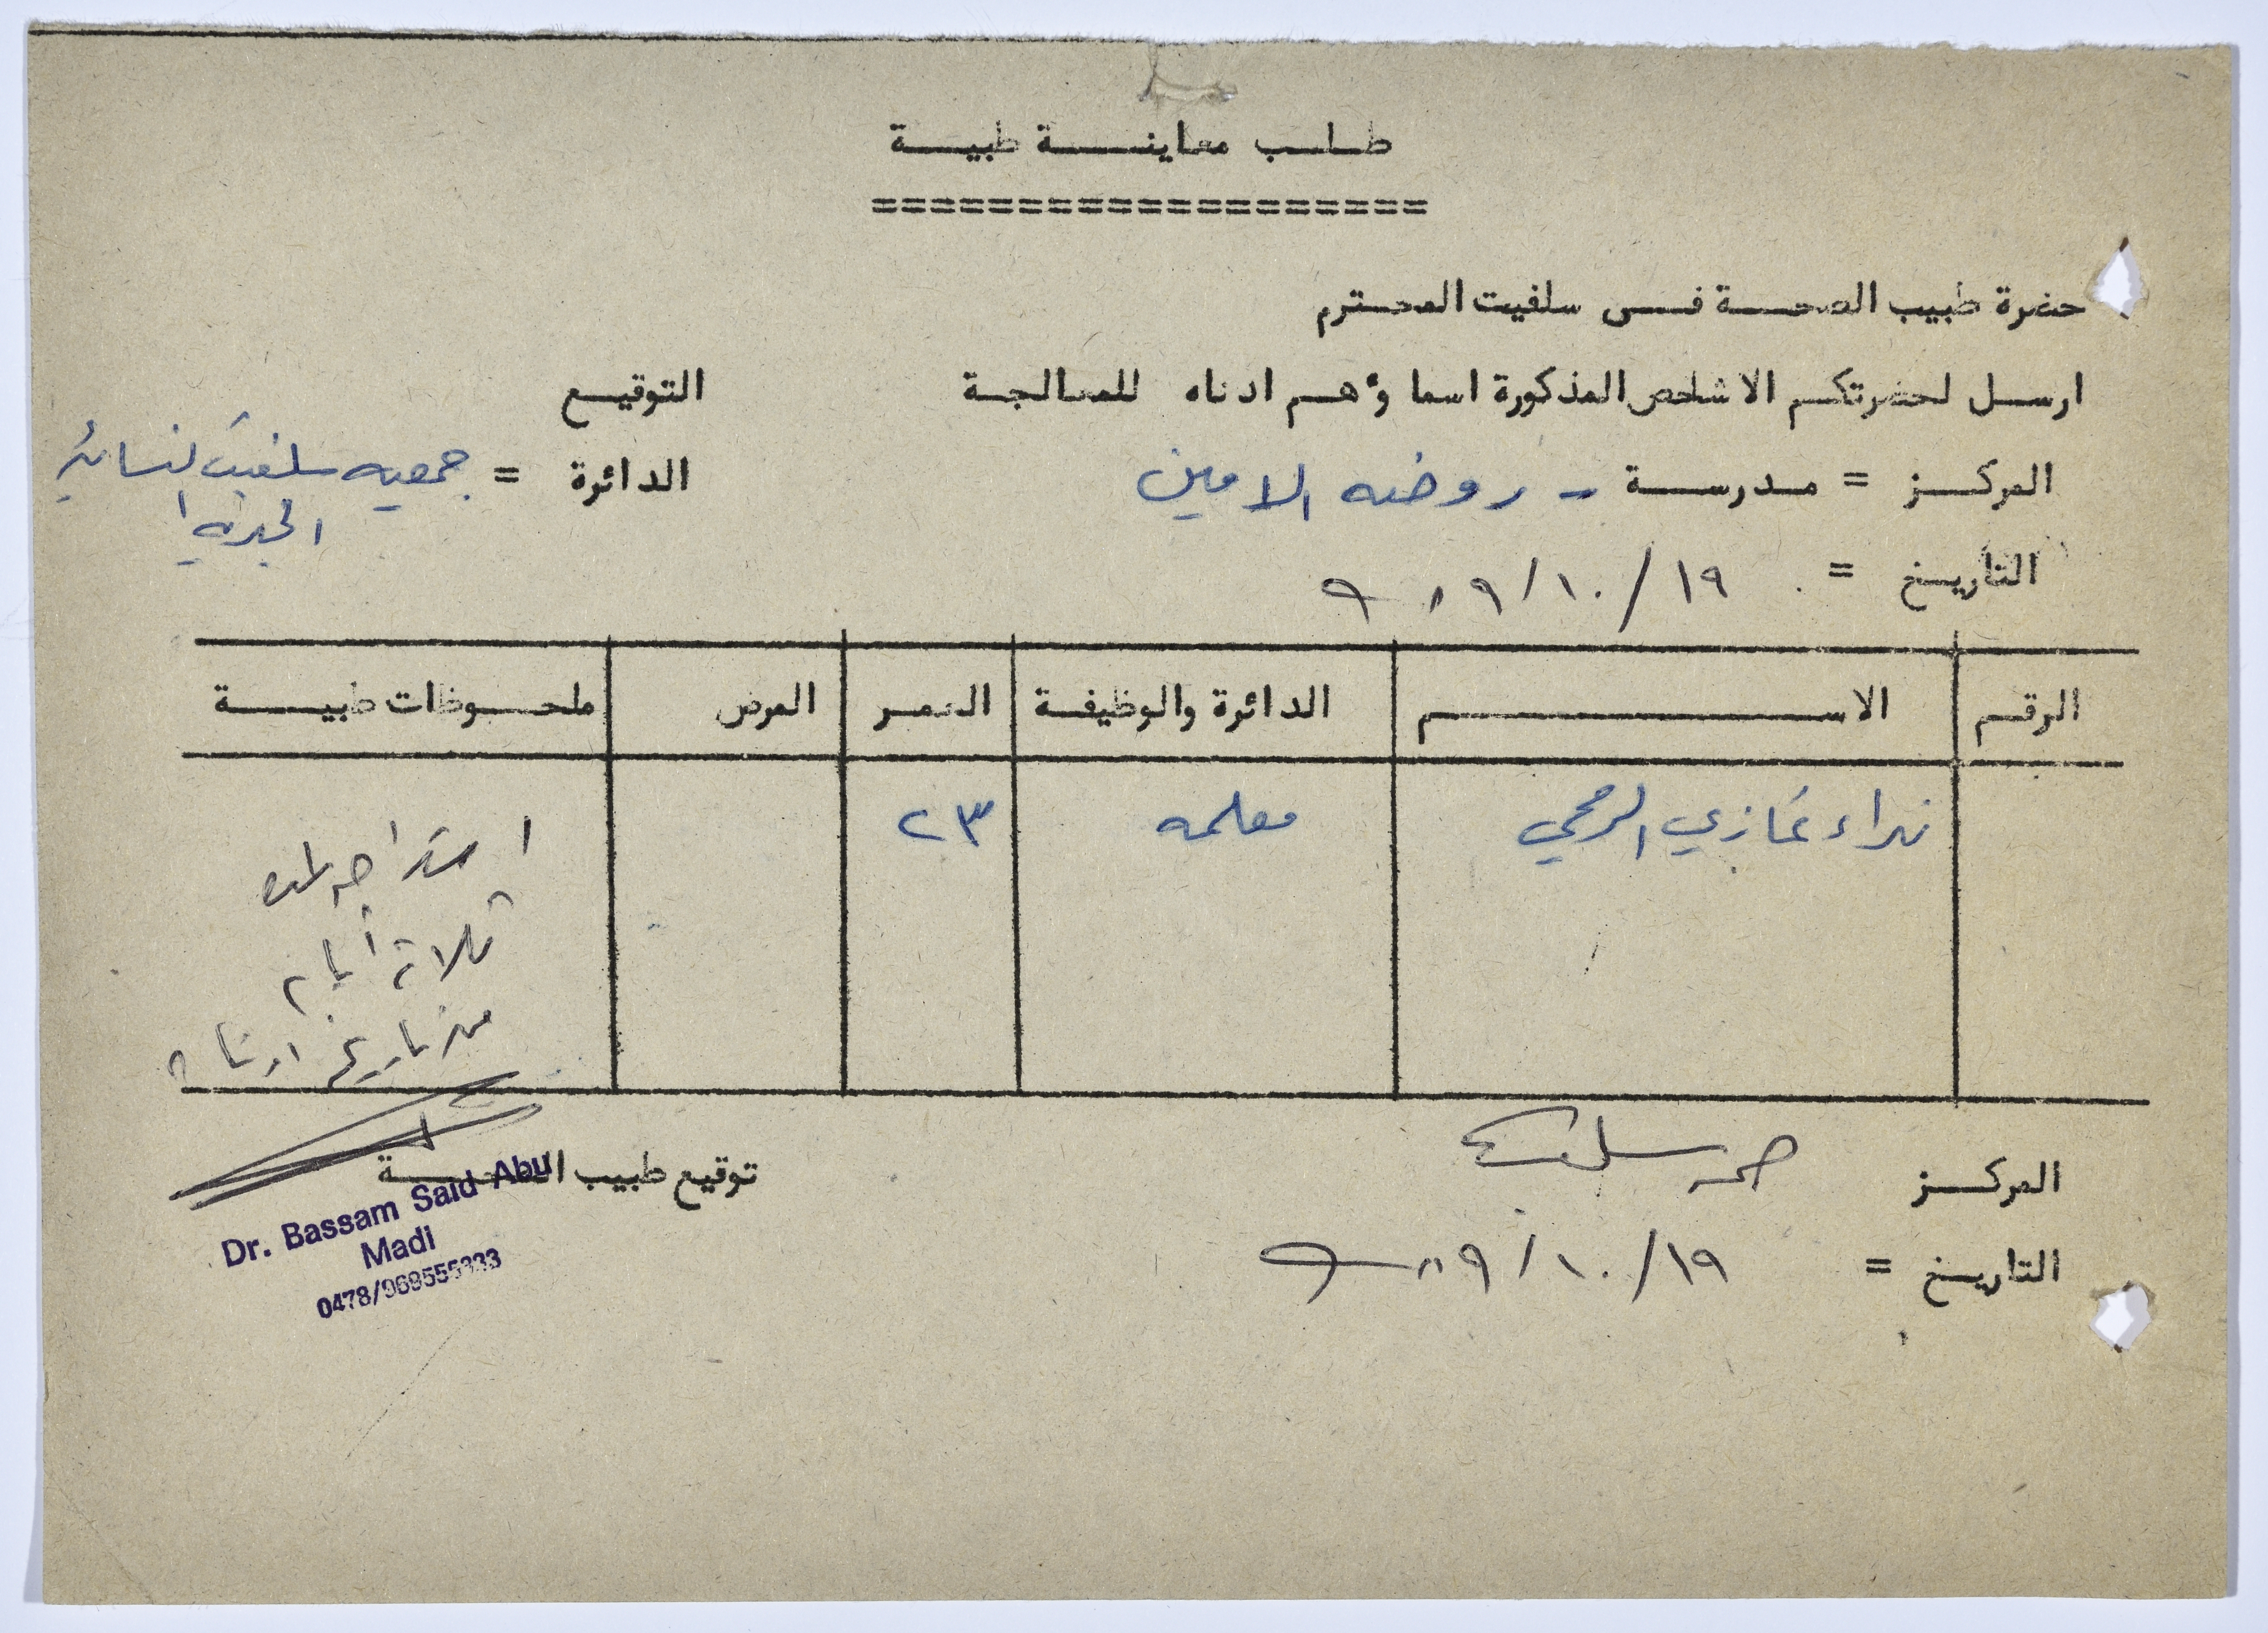 طلب معاينة طبية
====================
حضرة طبيب الصحة في سلفيت المحترم
ارسل لحضرتكم الاشخاص المذكورة اسماؤهم ادناه للمعالجة التوقيع
المركز = مدرسة - روضه الامين الدائرة = جمعيه سلفيت النسائية
الخيرية
التاريخ = ١٩/١٠/٨٩
الرقم الاسم الدائرة والوظيفة العمر المرض ملحوظات طبية
نداء غازي الرمحي معلمه ٢٣
استراحه لمده
ثلاثة أيام
من تاريخ ادناه
المركز صحة سلفيت توقيع طبيب الصحة
التاريخ = ١٩/١٠/٨٩
Dr. Bassam Said Abu
Madi
0478/969555333